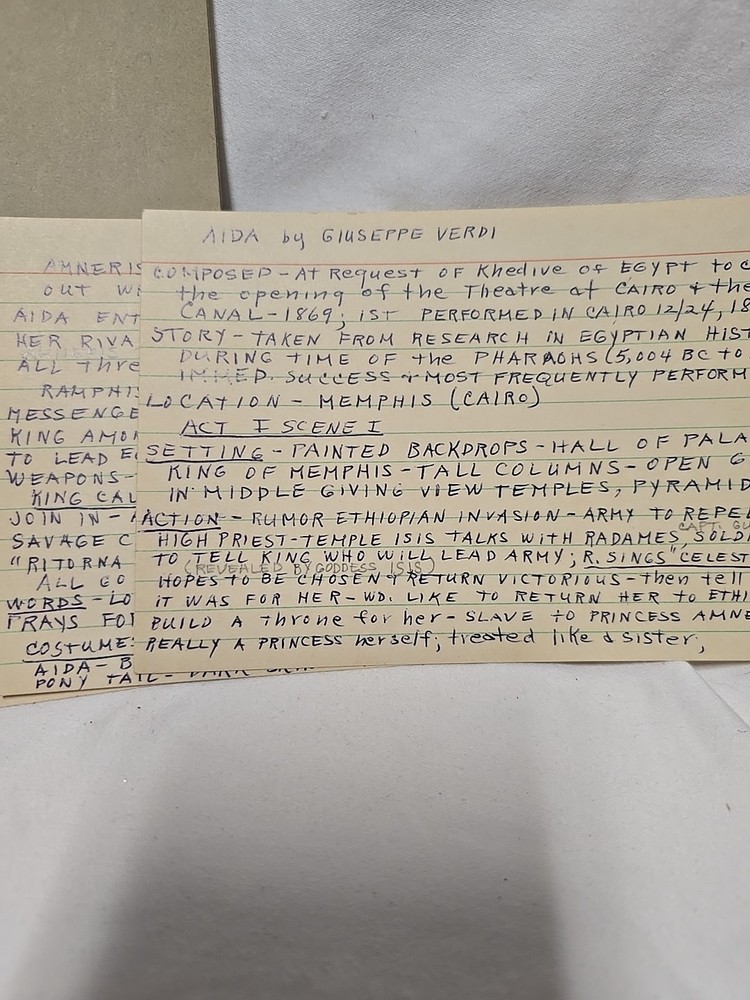 AIDA by GIUSEPPE VERDI
COMPOSED - At Request OF Khedive of EGYPT to C
the opening of the Theatre at CAIRO + the
CANAL - 1869; 1ST PERFORMED IN CAIRO 12/24, 18
STORY - TAKEN FROM RESEARCH IN EGYPTIAN HIST
DURING TIME OF the PHARAOHS (5,004 BC to
IMMED. SUCCESS + MOST FREQUENTLY PERFORM
LOCATION - MEMPHIS (CAIRO)
ACT I SCENE I
SETTING - PAINTED BACKDROPS - HALL OF PALA
KING OF MEMPHIS - TALL COLUMNS - OPEN G
IN MIDDLE GIVING VIEW TEMPLES, PYRAMID
ACTION - RUMOR ETHIOPIAN INVASION - ARMY TO REPEL
CAPT. GU
HIGH PRIEST - TEMPLE ISIS TALKS WITH RADAMES, SOLDI
TO TELL KING WHO WILL LEAD ARMY; R. SINGS "CELEST
(REVEALED BY GODDESS ISIS)
HOPES TO BE CHOSEN + RETURN VICTORIOUS - then tell
IT WAS FOR HER - WD. LIKE TO RETURN HER to ETHI
BUILD A Throne for her - SLAVE TO PRINCESS AMNE
REALLY A PRINCESS herself; treated like a sister;
AMNERIS
OUT WI
AIDA ENT
HER RIVA
ALL Thre
RAMPHIS
MESSENGE
KING AMO
TO LEAD E
WEAPONS -
KING CAL
JOIN IN -
SAVAGE C
"RITORNA
ALL GO
WORDS - LO
PRAYS FOR
COSTUME:
AIDA - B
PONY TAIL - DARK